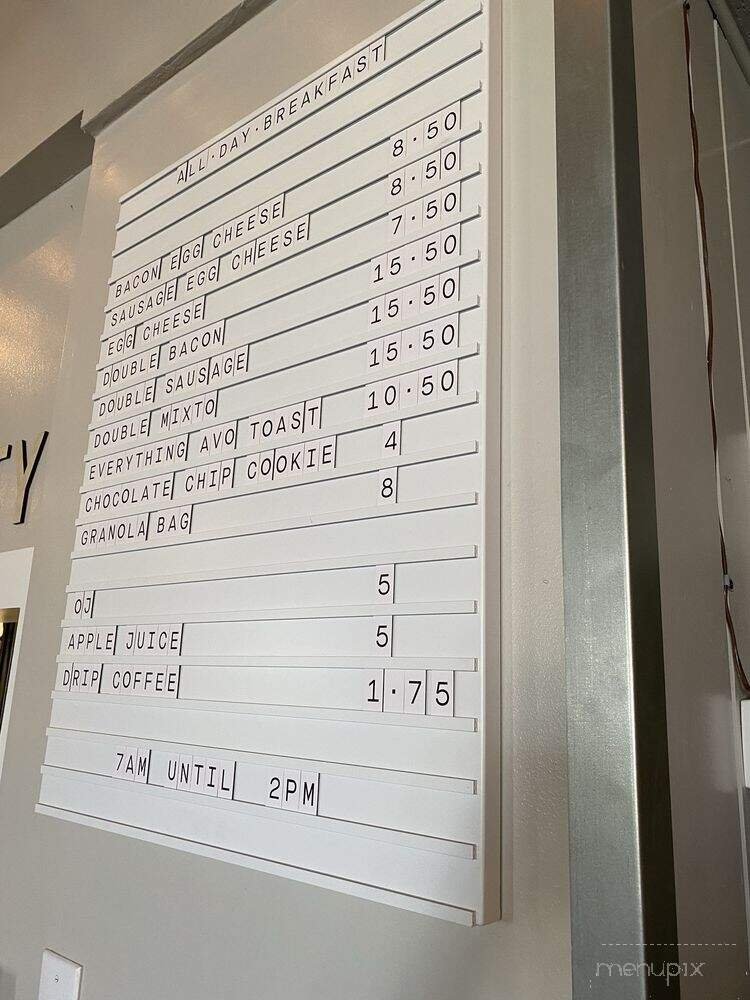 ALL·DAY·BREAKFAST
BACON EGG CHEESE 8·50
SAUSAGE EGG CHEESE 8·50
EGG CHEESE 7·50
DOUBLE BACON 15·50
DOUBLE SAUSAGE 15·50
DOUBLE MIXTO 15·50
EVERYTHING AVO TOAST 10·50
CHOCOLATE CHIP COOKIE 4
GRANOLA BAG 8
OJ 5
APPLE JUICE 5
DRIP COFFEE 1·75
7AM UNTIL 2PM
menupix